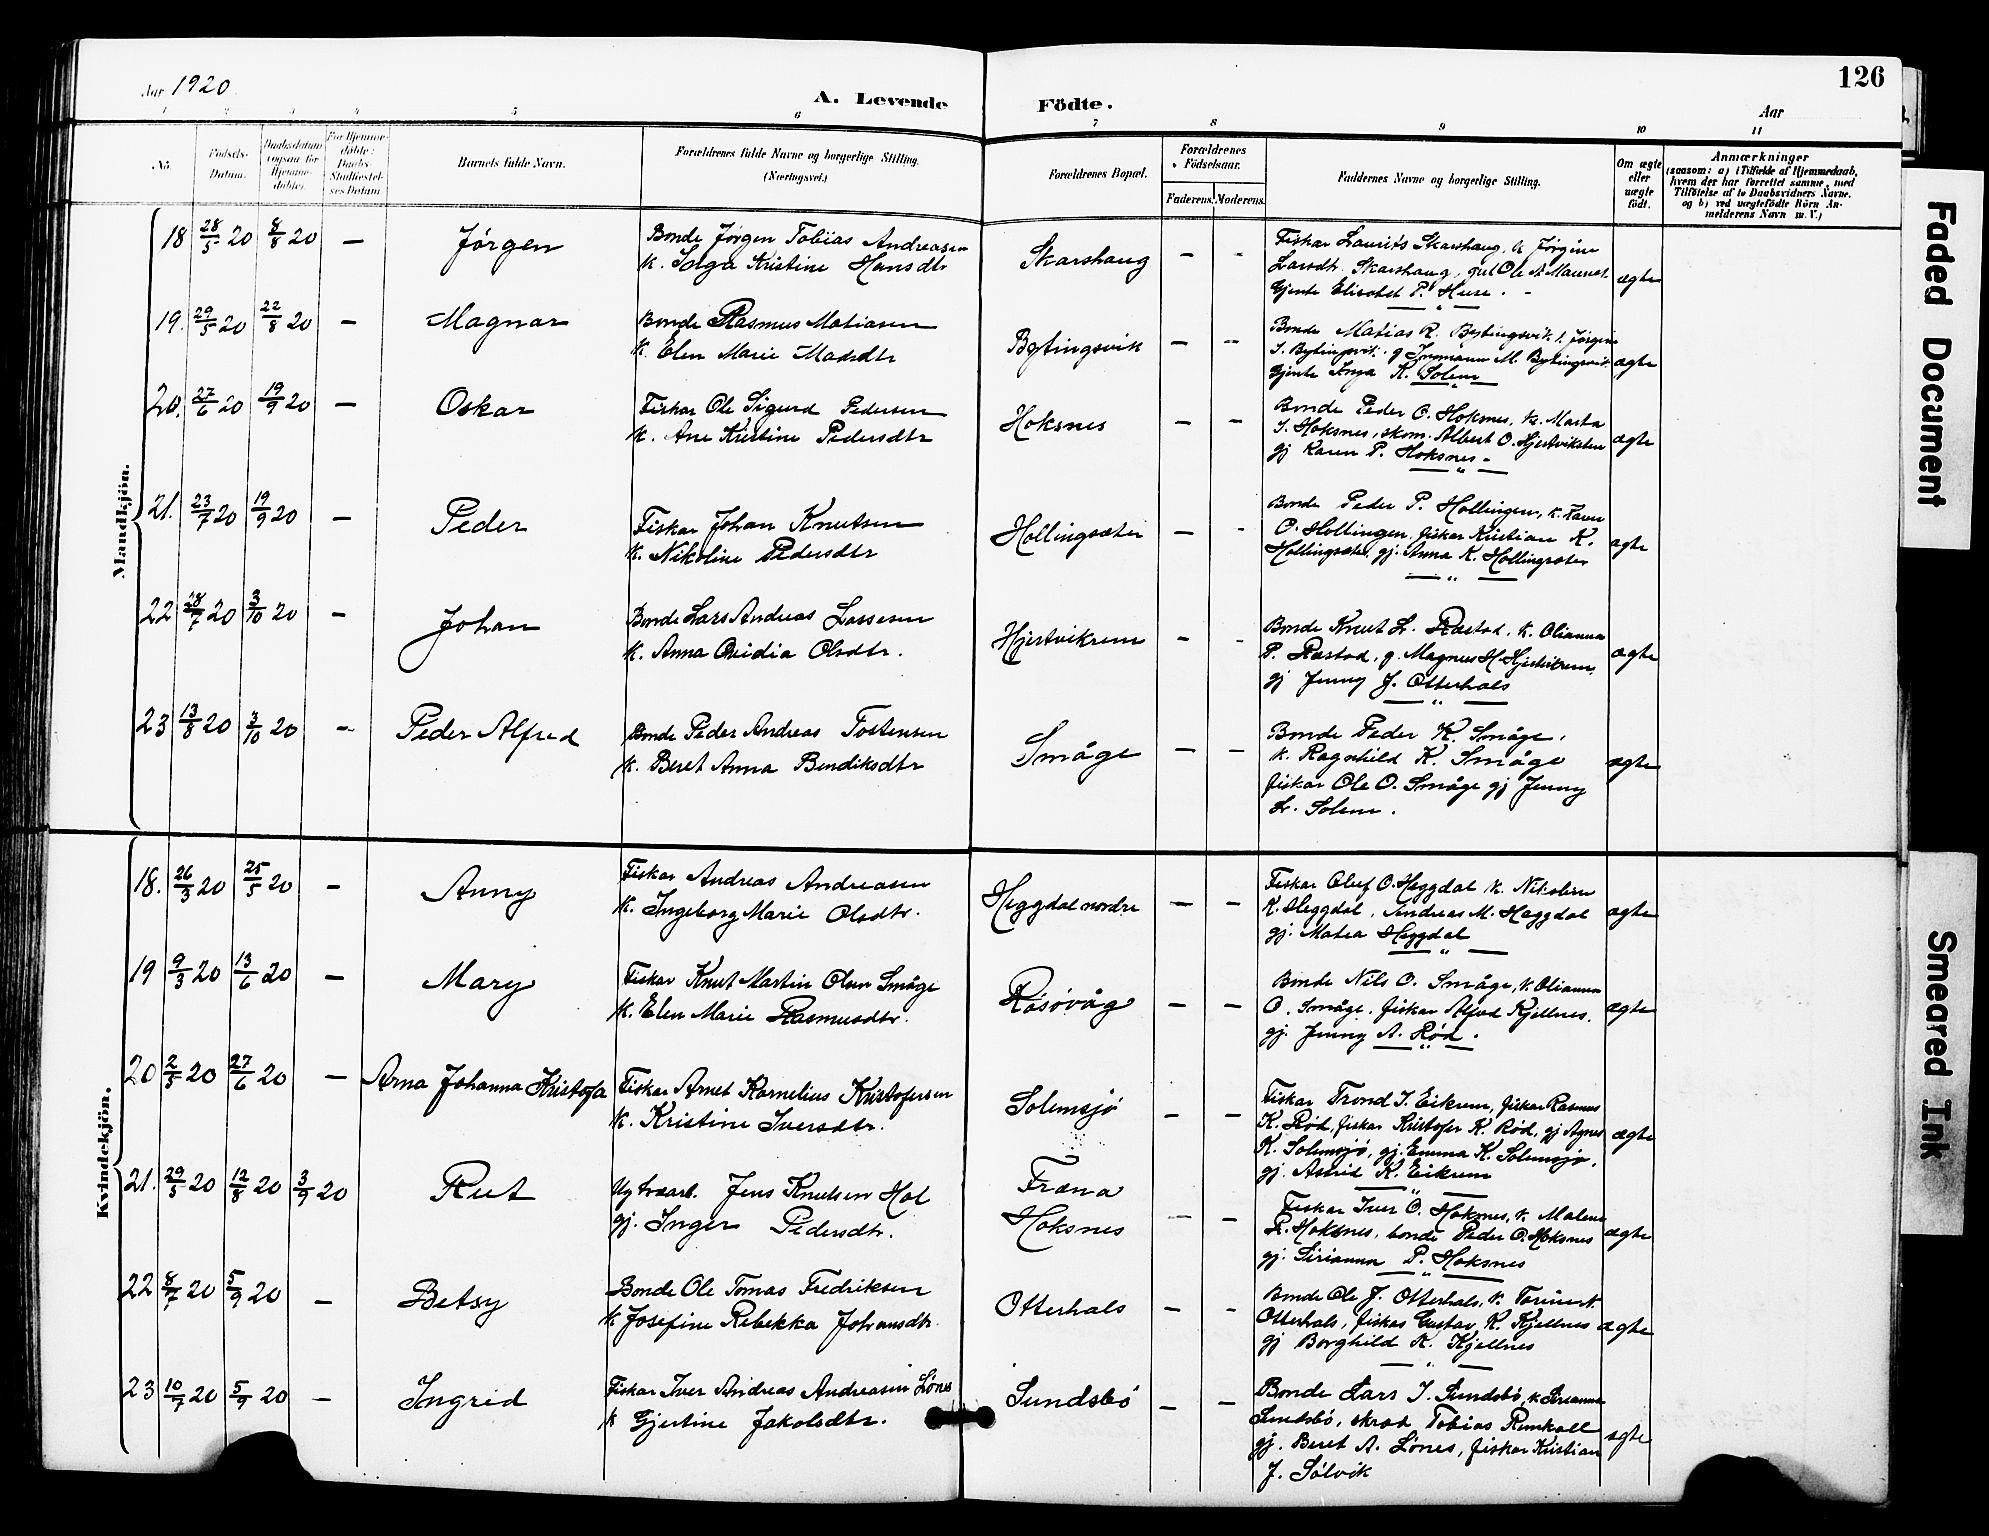 Aar 1920
A. Levende Födte.
126
Aar
1 2 3 4 5 6 7 8 9 10 11
No.
Födsels-Datum.
Daabsdatum (ogsaa for Hjemmedöbte).
For Hjemmedöbte: Daabs Stadfæstelses Datum
Barnets fulde Navn.
Forældrenes fulde Navne og borgerlige Stilling. (Næringsvei.)
Forældrenes Bopæl.
Forældrenes Födselsaar.
Faderens. Moderens.
Faddernes Navne og borgerlige Stilling.
Om ægte eller uægte födt.
Anmærkninger
(saasom: a) i Tilfælde af Hjemmedaab,
hvem der har forrettet samme, med
Tilföielse af to Daabsvidners Navne.
og b) ved uægtefödte Börn An-
melderens Navn m. V.)
Mandkjön.
18 28/5 20 8/8 20 — Jørgen
Bonde Jørgen Tobias Andreasen
K. Inga Kristine Hansdtr
Skarshaug - -
Fiskar Laurits Skarshaug, k Jørgine
Larsdtr. Skarshaug, Ole A.
Gjente Elisabet P. Huse.
ægte
19. 29/5 20 22/8 20 — Magnar
Bonde Rasmus Matiasen
K. Elen Marie Madsdtr
Bytingsvik - -
Bonde Matias R. Bytingsvik, Jørgine
J. Bytingsvik. g Ingmann M. Bytingsvik
Gjente Inga K. Solem
ægte
20. 27/6 20 19/9 20 — Oskar
Fiskar Ole Sigurd Pedersen
K. Ane Kristine Pedersdtr
Hoksnes - -
Bonde Peder O. Hoksnes, k. Marta
J. Hoksnes, skom. Albert O. Hjertvikslien
gj Karen P. Hoksnes -
ægte
21. 23/7 20 19/9 20 — Peder
Fiskar Johan Knutsen
K. Nikoline Pedersdtr
Hollingsæter - -
Bonde Peder P. Hollingen, k. Karen
O. Hollingen, fiskar Kristian K.
Hollingsæter, gj. Anna K. Hollingsæter
ægte
22 28/7 20 3/10 20 — Johan
Bonde Lars Andreas Larsen
K. Anna Ovidia Olsdtr.
Hjertvikrem - -
Bonde Knut L. Rastad, k. Olianna
P. Rastad, g. Magnus H. Hjertvikrem,
gj Jenny J. Otterhals
ægte
23 13/8 20 3/10 20 — Peder Alfred
Bonde Peder Andreas Tostensen
K. Beret Anna Bendiksdtr
Småge - -
Bonde Peder K. Småge,
k. Ragnhild K. Småge
fiskar Ole O. Småge gj Jenny
L. Solem.
ægte
Kvindekjön.
18. 26/3 20 25/5 20 — Anny
Fiskar Andreas Andreasen
K. Ingeborg Marie Olsdtr.
Heggdal nordre - -
Fiskar Oluf O. Heggdal k. Nikoline
K. Heggdal, Andreas M. Heggdal
gj. Matea Heggdal
ægte
19 9/3 20 13/6 20 — Mary
Fiskar Knut Martin Olsen Småge
K. Elen Marie Rasmusdtr.
Røsøvåg - -
Bonde Nils O. Småge, k. Olianna
O. Småge, fiskar Alfred Kjellnes.
gj. Jenny A. Rød.
ægte
20 2/5 20 27/6 20 — Arna Johanna Kristofa
Fiskar Arnet Kornelius Kristofersen
K. Kristine Iversdtr.
Solemsjø - -
Fiskar Trond I. Eikrem, fiskar Rasmus
K. Rød, fiskar Kristofer K. Rød, gj Agnes
K. Solemsjø, gj. Emma K. Solemsjø,
gj. Astrid K. Eikrem
ægte
21. 29/5 20 12/8 20 3/9 20 Rut
Ug Jens Knutsen Hol
gj. Inger Pedersdtr.
Fræna
Hoksnes - -
Fiskar Iver O. Hoksnes, k. Malene
P. Hoksnes, bonde Peder O. Hoksnes
gj. Sirianna P. Hoksnes
ægte
22 8/7 20 5/9 20 — Betsy
Bonde Ole Tomas Fredriksen
K Josefine Rebekka Johansdtr.
Otterhals - -
Bonde Ole J. Otterhals, k.
Otterhals, fiskar Gustav K. Kjellnes
gj Borghild K. Kjellnes
ægte
23 10/7 20 5/9 20 — Ingrid
Fiskar Iver Andreas Andreasen Lønes
K Gjertine Jakobsdtr.
Sundsbø - -
Bonde Lars I. Sundsbø, k Sirianna
Sundsbø, skræd Tobias
gj. Beret A. Lønes, fiskar Kristian
J. Sølvik
ægte
Faded Document
Smeared Ink